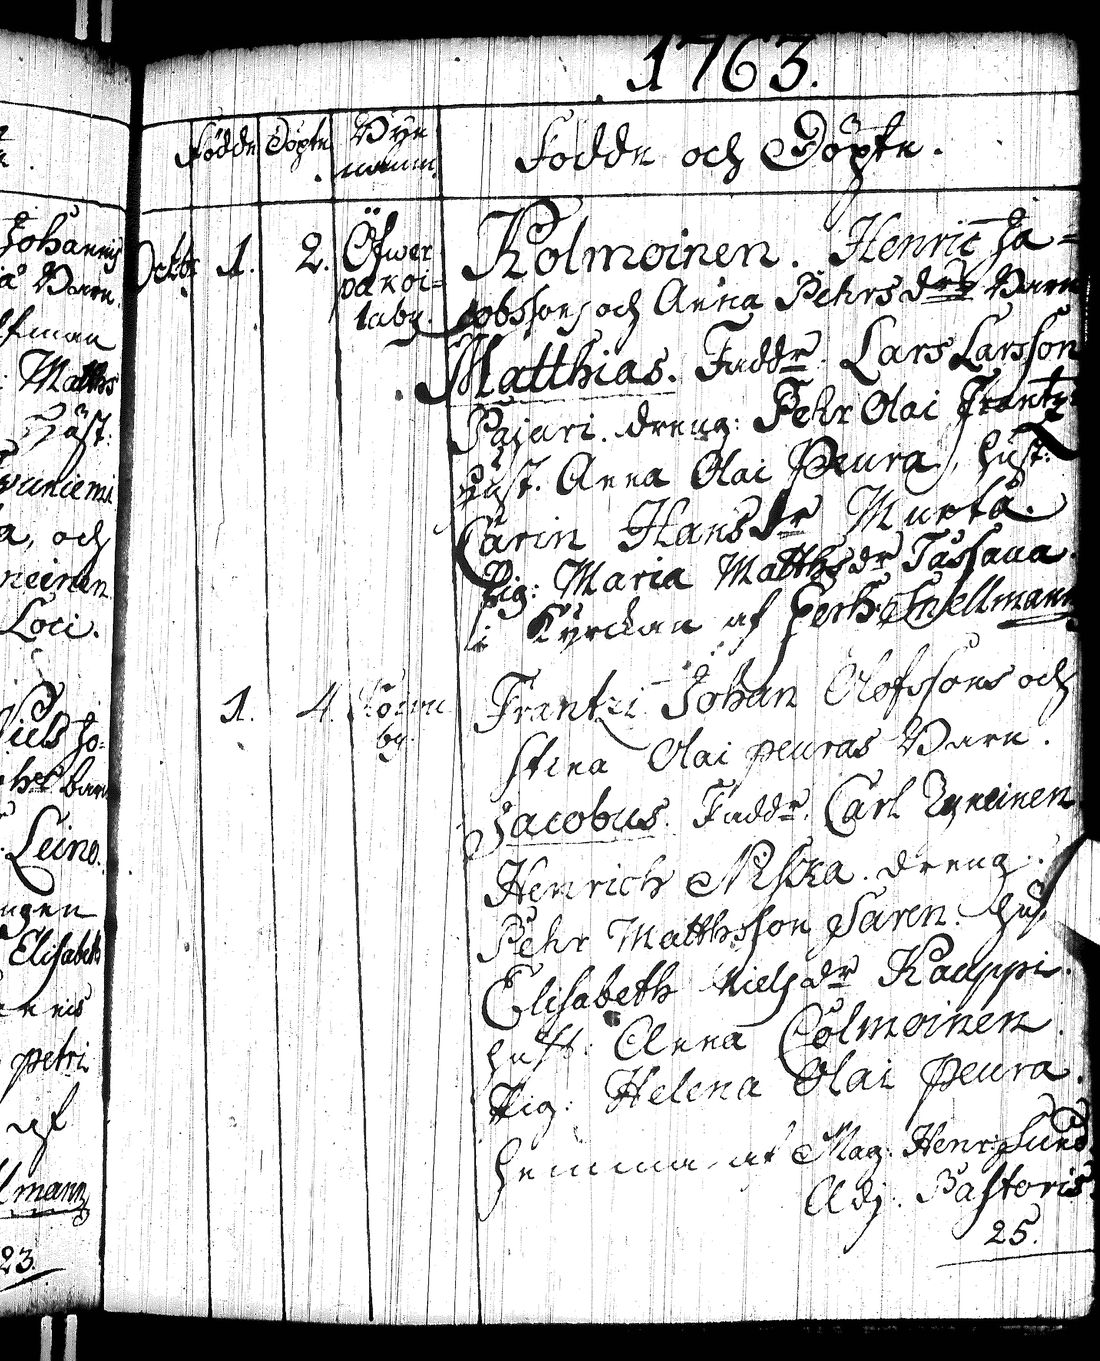 1763.
Födde Döpte Byn
namn. Födde och Döpte.
Octbr 1. 2. Öfwer Kolmoinen. Henric Ja=
pakoi= cobssons och Anna Pehrsdrs Barn
laby. Matthias. Faddr. Lars Larsson
Pajari. dreng: Pehr Olai Frantz
hust. Anna Olai Peura, hust:
Carin Hansdr Murta.
Pig: Maria Matthsdr Tassaua.
i Kyrckan af Herr Snellmann
1. 4. by. Frantzi Johan Olofssons och
Stina Olai peuras Barn.
Jacobus. Faddr. Carl
Henrich Niska. dreng:
Pehr Matthsson Saren. hust
Elisabeth Nielsdr Kauppi.
hust: Anna Colmoinen.
Pig: Helena Olai Peura.
hemma af Mag. Henr. Sund
Adj. Pastoris
25.
Johannis
Barn.
man
Matths
hust:
niemi
a, och
neinen
Loci.
Niels Jo=
barn
Leino.
ngen
Elisabeth
petri
af
lmann
23.